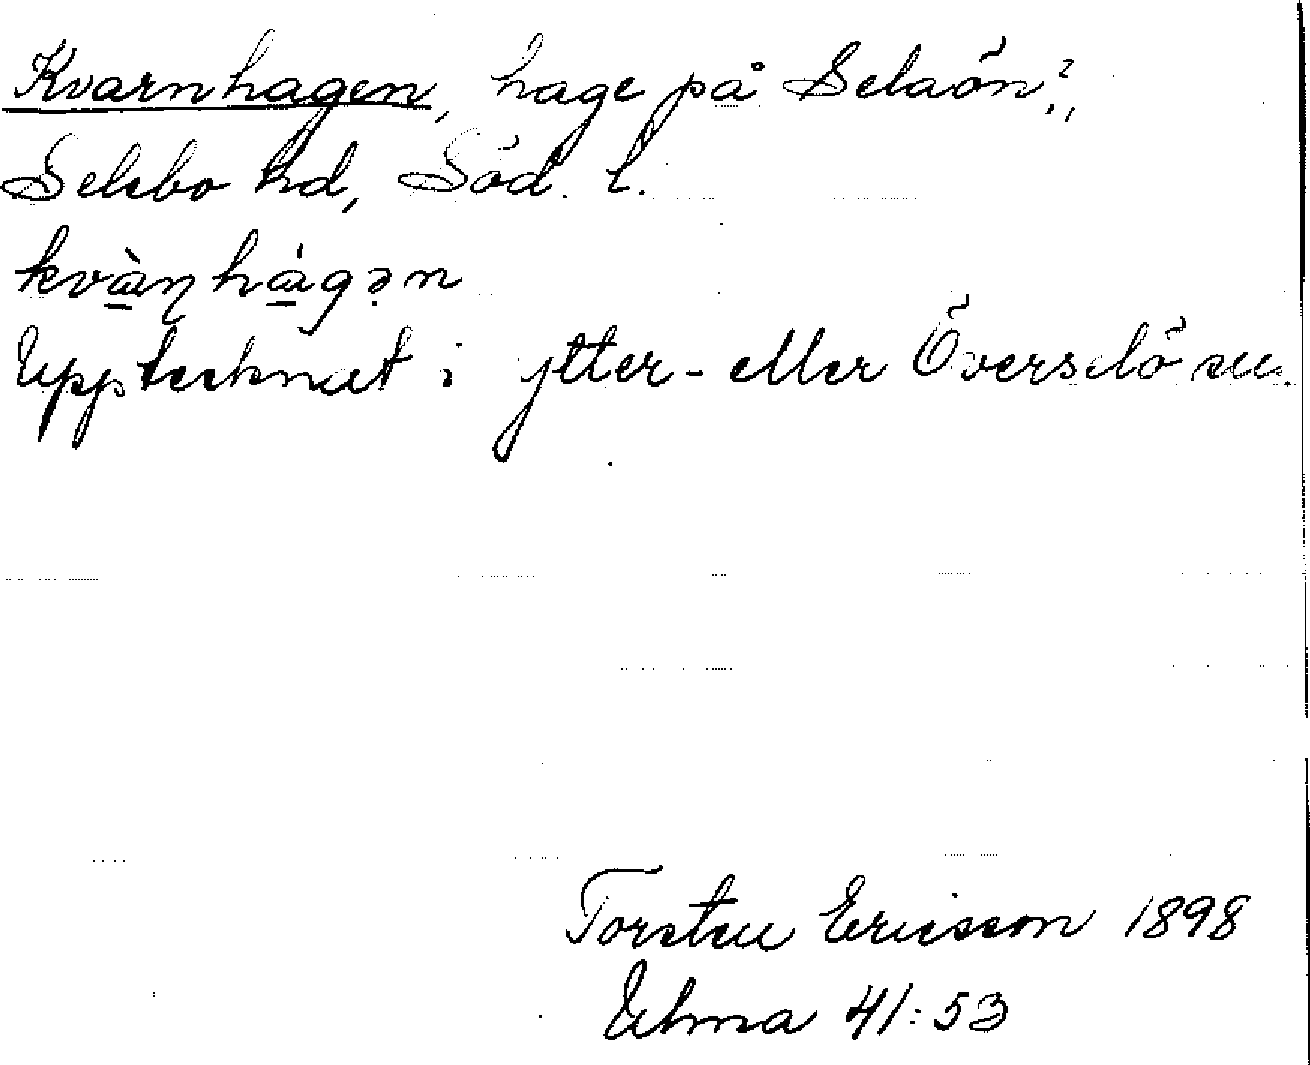 Kvarnhagen, hage på Selaön?,,
Selebo hd, Söd. l.
kvàꞑhágən
Upptecknat i ytter- eller Överselö sn.
Torsten Ericsson 1898
Ulma 41:53